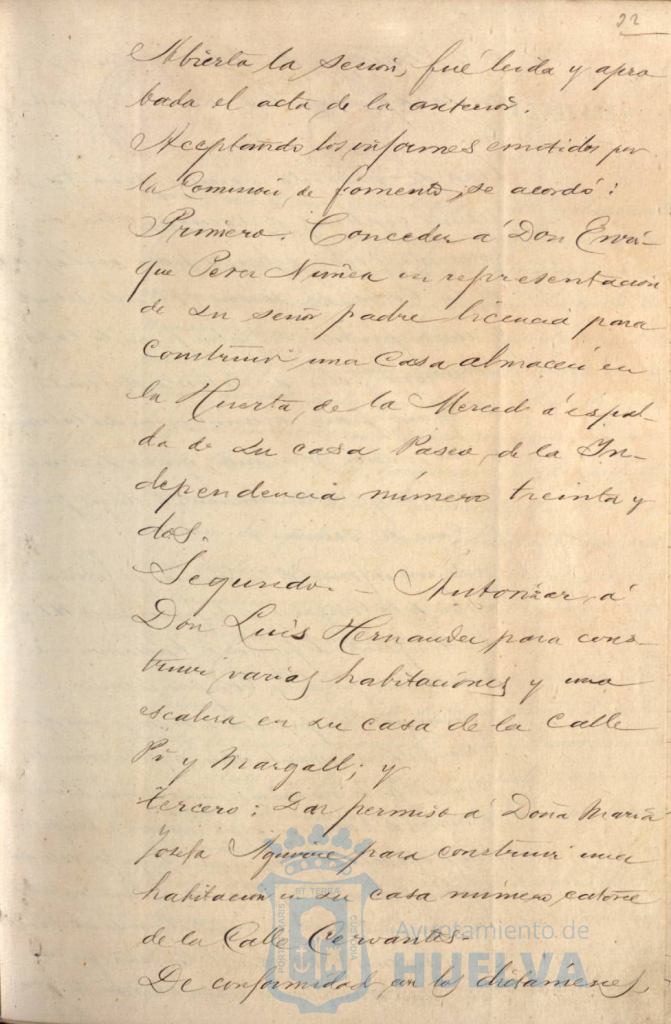 22
Abierta la sesión, fué leida y apro
bada el acta de la anterior.
Aceptando los informes emitidos por
la Comisión de fomento, se acordó:
Primero. Conceder á Don Enri-
que Perez Nuñez en representación
de su señor padre licencia para
construir una casa almacen en
la Huerta de la Merced á espal-
da de su casa Paseo de la In-
dependencia número treinta y
dos.
Segundo. - Autorizar á
Don Luis Hernandez para cons-
truir varias habitaciones y una
escalera en su casa de la calle
Pi y Margall; y
tercero: Dar permiso á Doña Maria
Josefa Aguirre para construir una
habitacion en su casa número catorce
de la Calle Cervantes-
De conformidad con los dictamenes
PORTUS MARIS ET TERRAE CUSTODIA
Ayuntamiento de
HUELVA